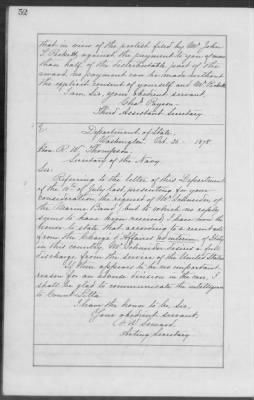 52
that in view of the protest filed by Mr. John
T. Pickett, against the payment to you of more
than half of the distributable part of the
award, no payment can be made without
the explicit consent of yourself and Mr. Pickett.
I am, Sir, your obedient servant,
Chas. Payson.
Third Assistant Secretary
Department of State,
Washington, Oct. 1878.
Hon. R. W. Thompson
Secretary of the Navy.
Sir:
Referring to the letter of this Department
of the 10th of July last, presenting for your
consideration, the request of Mr. Schneider of
the Marine Band, but to which no reply
seems to have been received, I have now the
honor to state that according to a recent note
from the Chargé d'Affaires ad interim of Italy
in this country, Mr. Schneider desires a full
discharge from the service of the United States.
If there appears to be no important
reason for an adverse decision in the case, I
shall be glad to communicate the intelligence
to Count Litta.
I have the honor to be, Sir,
Your obedient servant,
F. W. Seward.
Acting Secretary